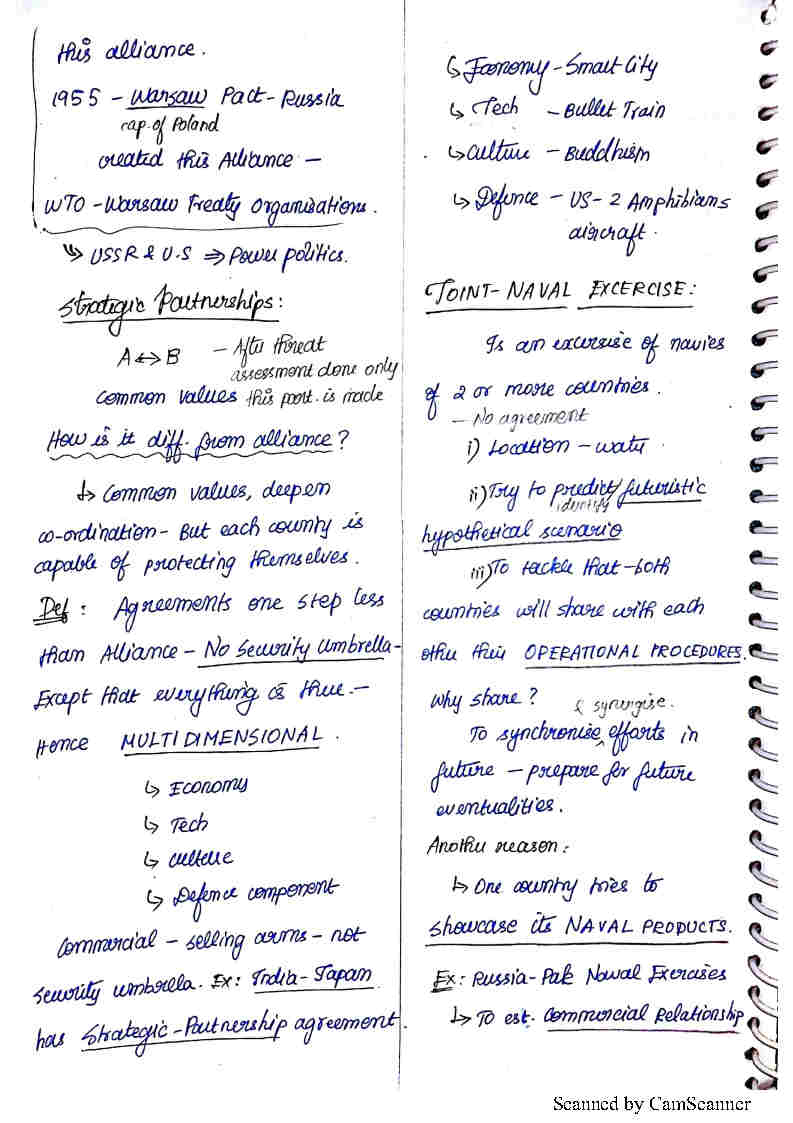 this alliance.
1955 - Warsaw Pact - Russia
cap. of Poland
created this Alliance -
WTO - Warsaw Treaty Organisations.
↳ USSR & U.S ⇒ Power politics.
Strategic Partnerships:
A ↔ B - After threat
assessment done only
common values this part. is made
How is it diff. from alliance?
↳ Common values, deepen
co-ordination - But each county is
capable of protecting themselves.
Def: Agreements one step less
than Alliance - No Security Umbrella -
Except that everything is there. -
Hence MULTIDIMENSIONAL.
↳ Economy
↳ Tech
↳ culture
↳ Defence component
Commercial - selling arms - not
security umbrella. Ex: India - Japan
has Strategic - Partnership agreement.
↳ Economy - Smart City
↳ Tech - Bullet Train
↳ Culture - Buddhism
↳ Defence - US-2 Amphibians
aircraft.
JOINT - NAVAL EXCERCISE:
Is an excersise of navies
of 2 or more countries.
- No agreement
i) Location - water
ii) Try to predict/futuristic
identify
hypothetical scenario
iii) To tackle that - both
countries will share with each
other their OPERATIONAL PROCEDURES.
Why share? & synergise.
To synchronise ^ efforts in
future - prepare for future
eventualities.
Another reason:
↳ One country tries to
showcase its NAVAL PRODUCTS.
Ex: Russia - Pak Naval Exercises
↳ To est. Commercial Relationship
Scanned by CamScanner